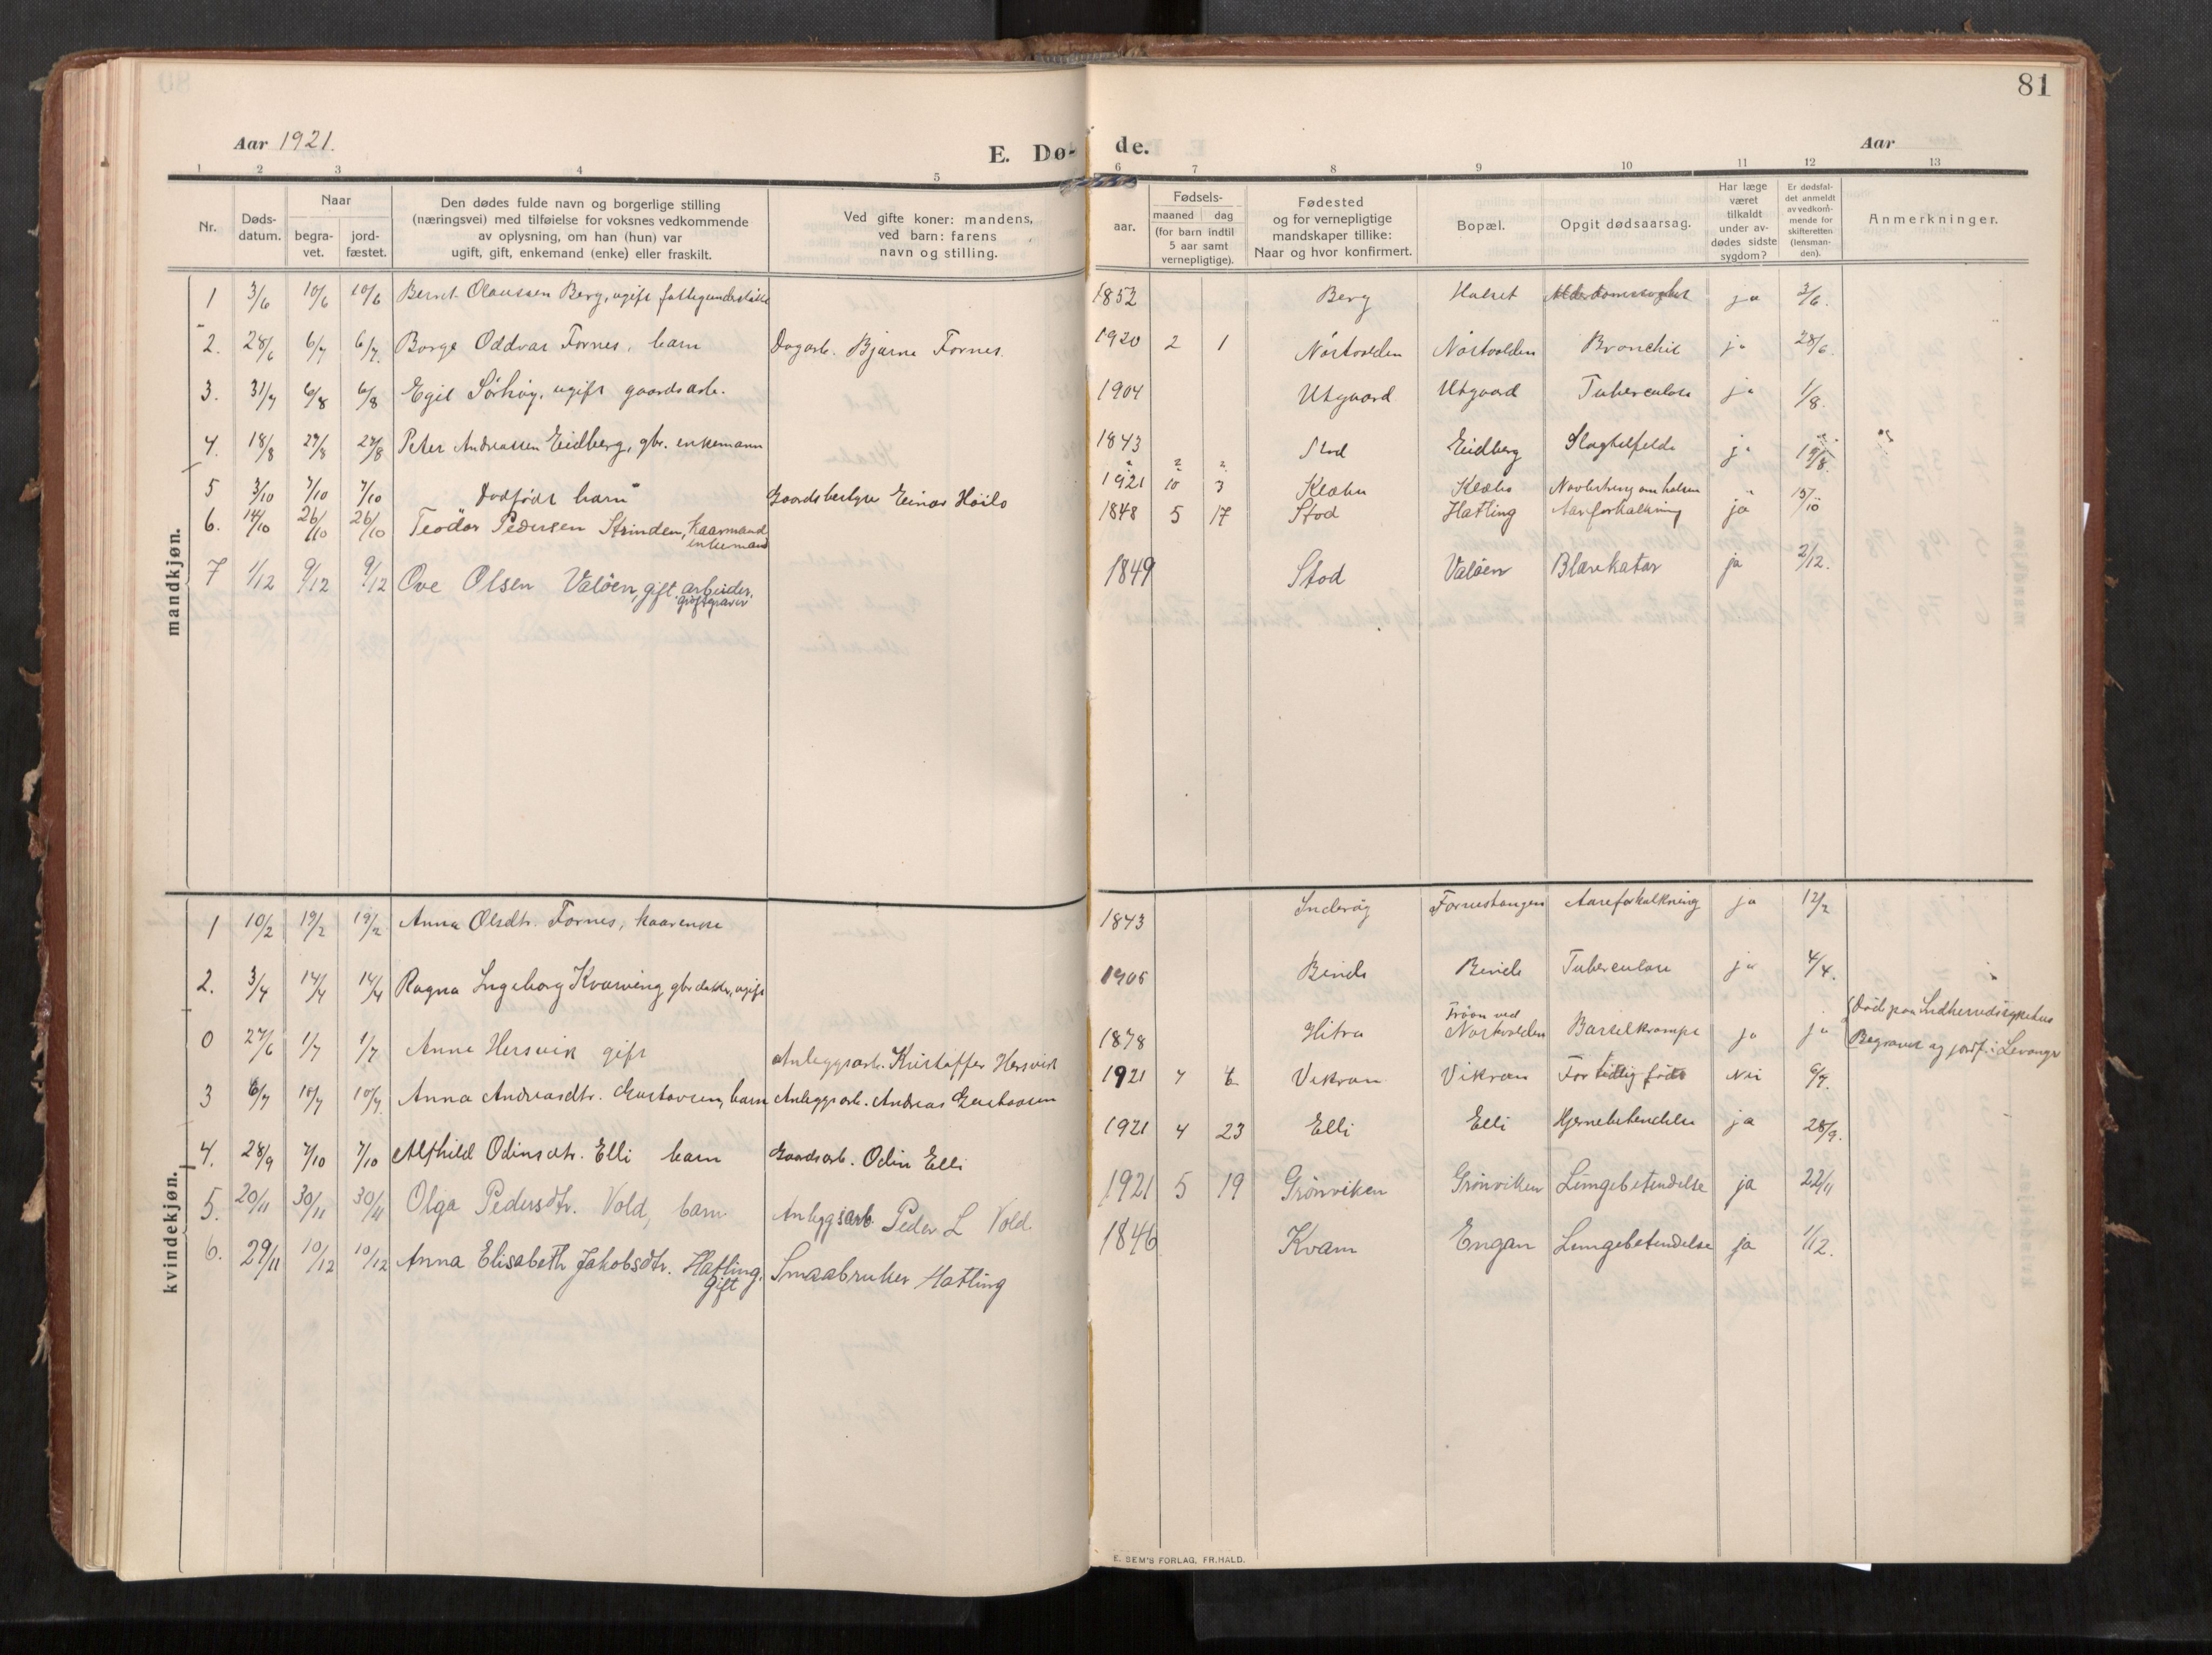 81
Aar 1921.
E. Dø-de.
Aar
1 2 3 4 5 6 7 8 9 10 11 12 13
Nr.
Døds-
datum.
Naar
begra-
vet.
jord-
fæstet.
Den dødes fulde navn og borgerlige stilling
(næringsvei) med tilføielse for voksnes vedkommende
av oplysning, om han (hun) var
ugift, gift, enkemand (enke) eller fraskilt.
Ved gifte koner: mandens,
ved barn: farens
navn og stilling.
aar.
Fødsels-
maaned dag
(for barn indtil
5 aar samt
vernepligtige).
Fødested
og for vernepligtige
mandskaper tillike:
Naar og hvor konfirmert.
Bopæl.
Opgit dødsaarsag.
Har læge
været
tilkaldt
under av-
dødes sidste
sygdom?
Er dødsfal-
det anmeldt
av vedkom-
mende for
skifteretten
(lensman-
den).
Anmerkninger.
mandkjøn.
1 3/6 10/6 10/6 Bernt Olaussen Berg, ugift 1852 Berg Halset ja 3/6.
2. 28/6 6/7 6/7. Borge Oddvar Fornes, barn Dagarb. Bjarne Fornes. 1920 2 1 Nóstvolden Nóstvolden Bronchit ja 28/6.
3. 31/7 6/8 6/8 Egil Sørhøy, ugift gaardsarb. 1904 Utgaard Utgaard Tuberculose ja 1/8.
4. 18/8 27/8 27/8 Peter Andreassen Eidberg, gbr. enkemann 1843 Stod Eidberg Slagtilfelde ja 19/8.
5 3/10 7/10 7/10 Dødfødt barn Gaardsbestyrer Einar Höilo 1921 10 3 Klæbu Klæbu Navlestreng om halsen
6. 14/10 26/10 26/10 Teodor Pedersen Strinden, Kaarmand 1848 5 17 Stod Hatling Aareforkalkning ja 15/10
enkemand
7 1/12 9/12 9/12 Ove Olsen Valöen, gift. arbeider. 1849 Stod Valöen Blærekatar ja 2/12.
kvindekjøn.
1 10/2 19/2 19/2 Anna Olsdtr. Fornes, kaarenke 1843 Inderøy Fornestangen Aareforkalkning ja 12/2
2. 3/4 14/4 14/4 Ragna Ingeborg Kvarving gbr.datter, ugift Binde Binde Tuberculose ja 4/4.
0 27/6 1/7 1/7 Anna Hersvik gift Anleggsarb. Kristoffer Hersvik 1878 Hitra ved
Nostvolden Barselkrampe ja ja Död paa Indherredssykehus
Begravet og jordf. i Levanger
3 6/7 10/7 10/7 Anna Andreasdtr. Gustavsen, barn Anleggsarb. Andreas Gustavsen 1921 7 6 Vikran Vikran For tidlig født Nei 9/7.
4. 28/9 7/10 7/10 Alfhild Odinsdtr. Elli barn Gaardsarb. Odin Elli 1921 4 23 Elli Elli Hjernebetendelse ja 28/9.
5. 20/11 30/11 30/11 Olga Pedersdtr. Vold, barn Anleggsarb. Peder L Vold. 1921 5 19 Grönviken Grönviken Lungebetendelse ja 22/11
6. 29/11 10/12 10/12 Anna Elisabeth Jakobsdtr. Hatling, Smaabruker Hatling 1846 Kvam Engan Lungebetendelse ja 1/12.
gift
E. SEM'S FORLAG, FR.HALD.